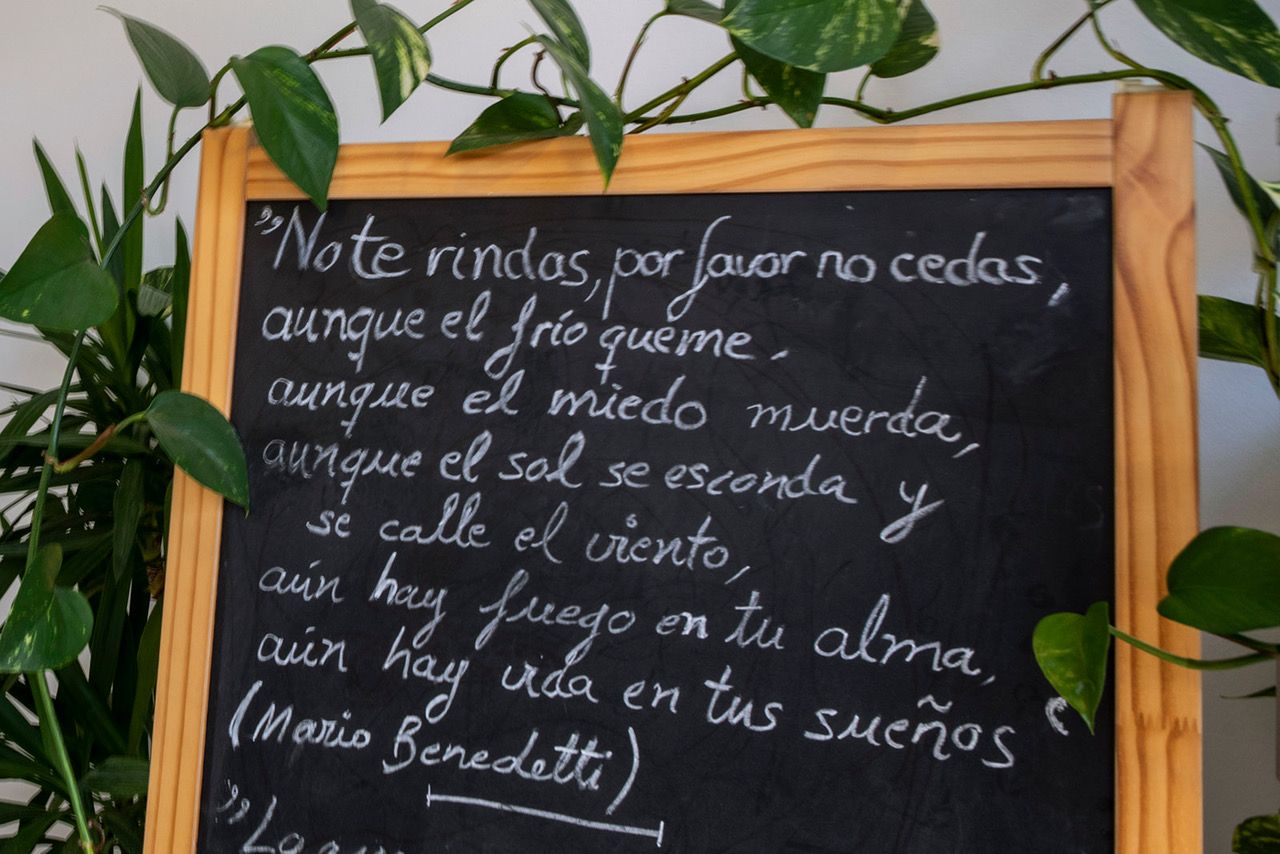 "No te rindas, por favor no cedas,
aunque el frío queme,
aunque el miedo muerda,
aunque el sol se esconda y
se calle el viento,
aún hay fuego en tu alma,
aún hay vida en tus sueños"
(Mario Benedetti)